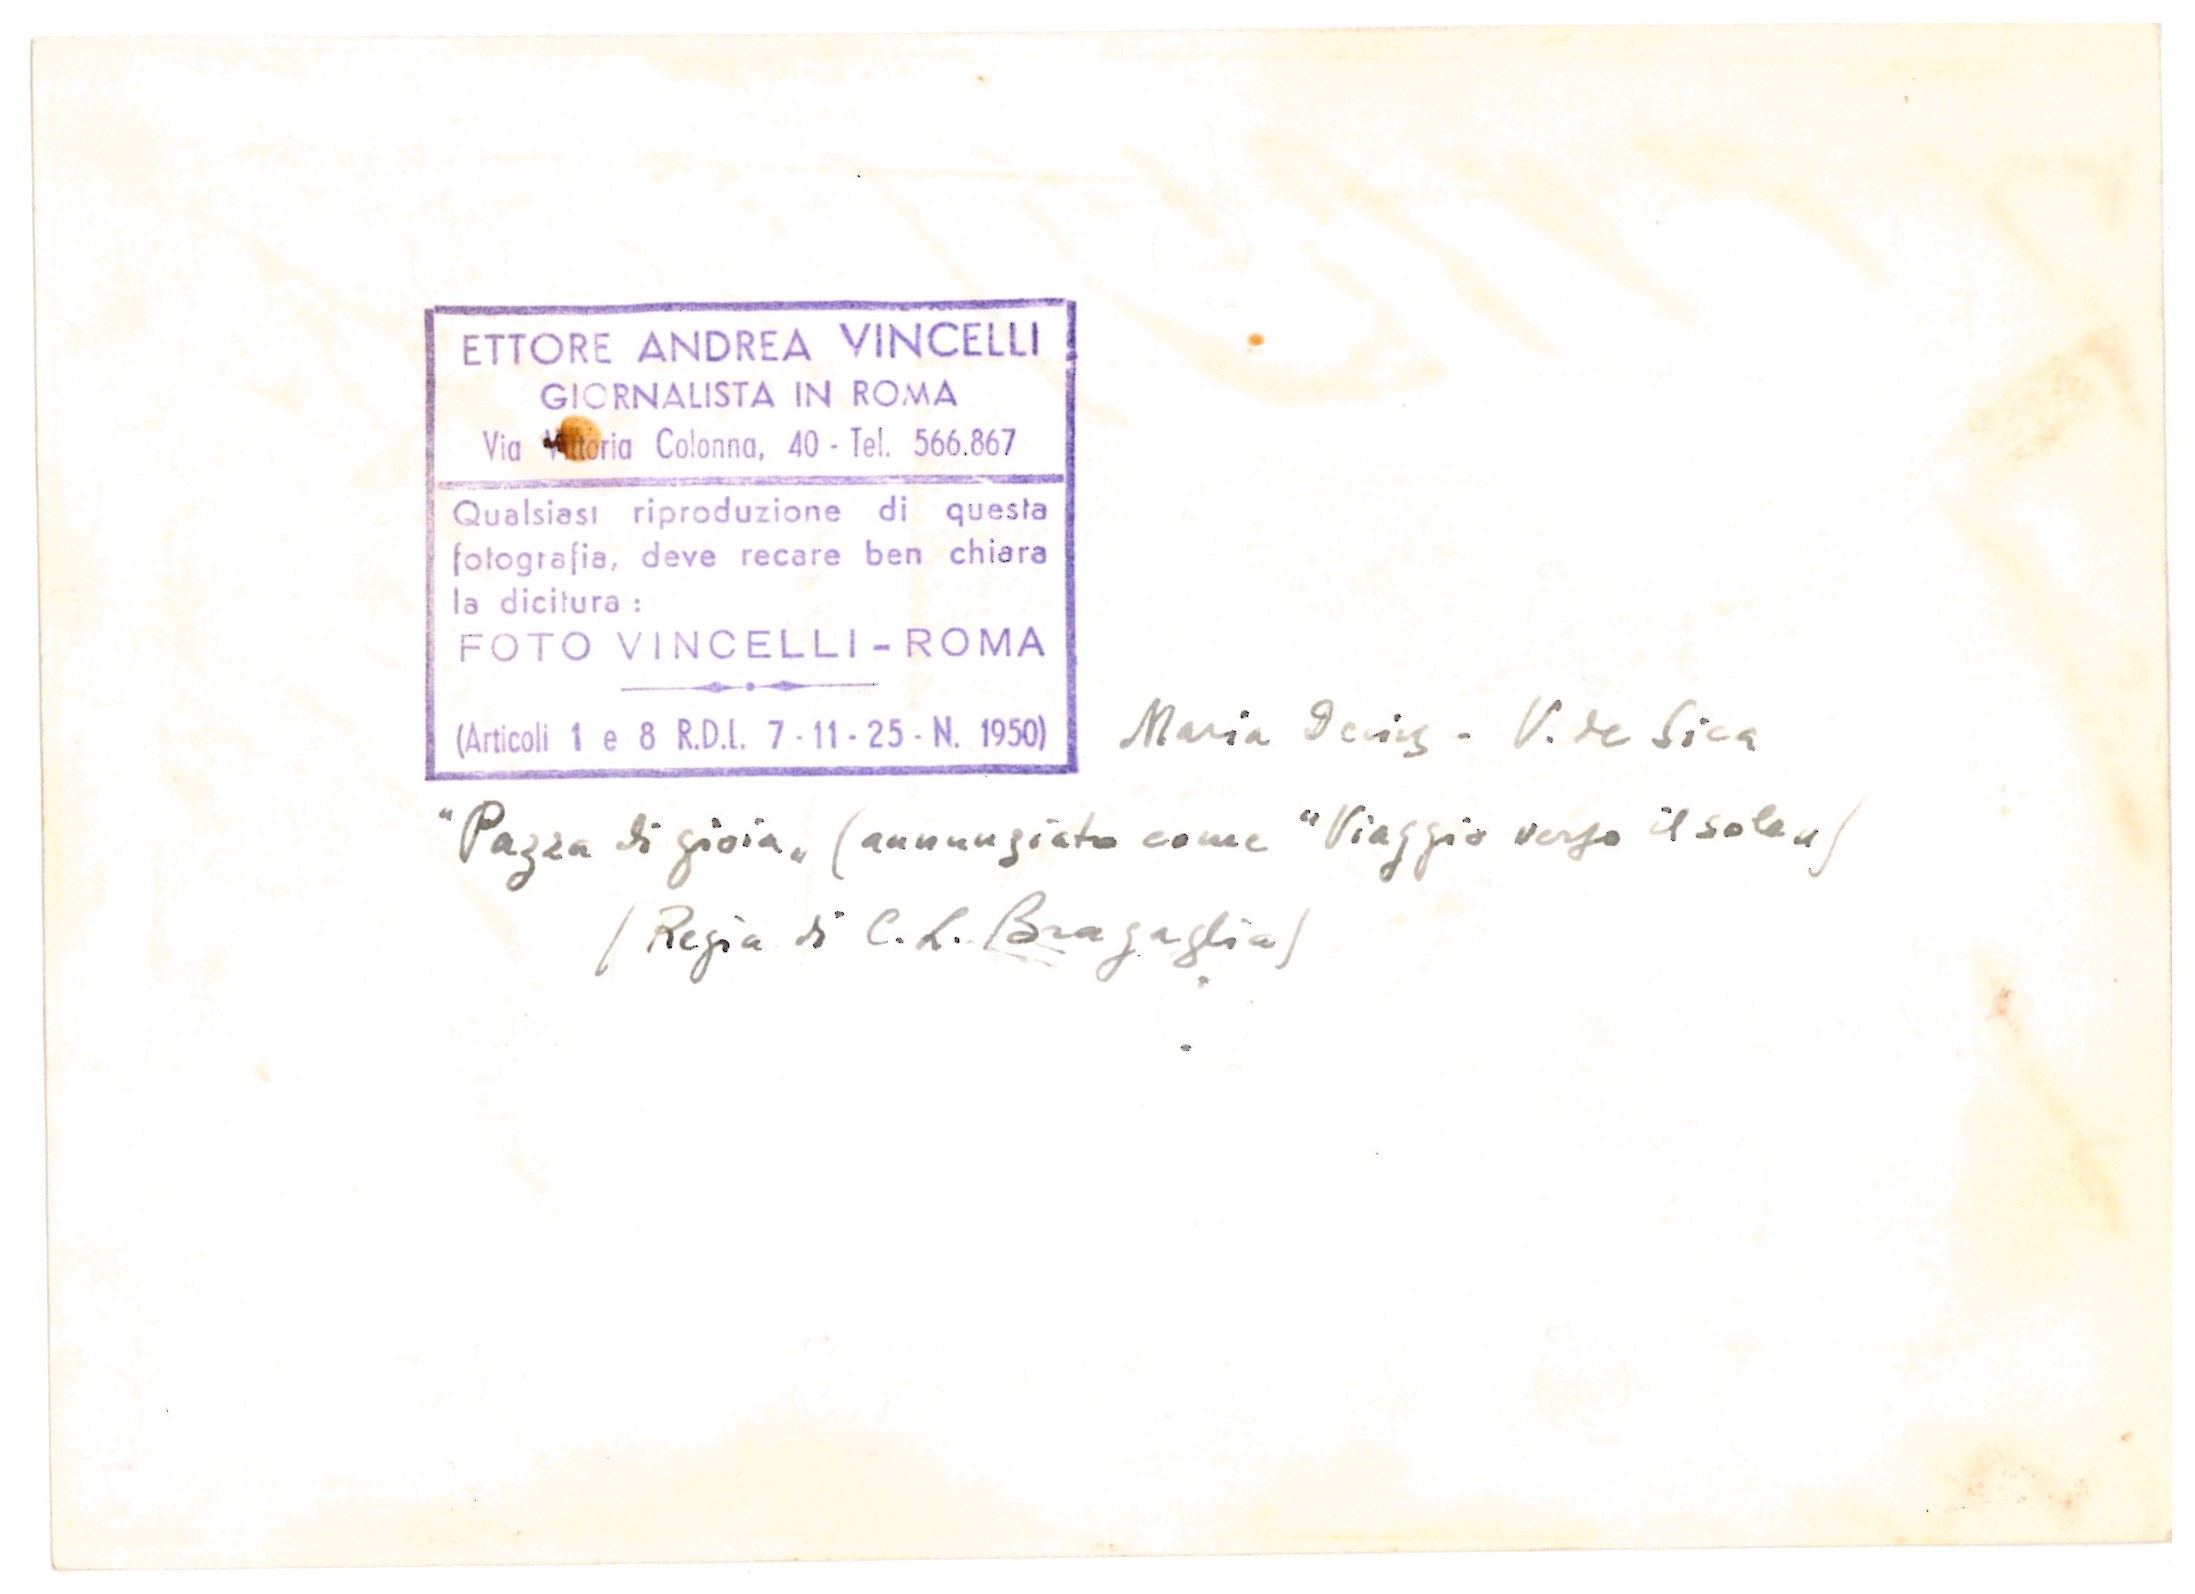 ETTORE ANDREA VINCELLI
GIORNALISTA IN ROMA
Via Vittoria Colonna, 40 - Tel. 566.867
Qualsiasi riproduzione di questa
fotografia, deve recare ben chiara
la dicitura :
FOTO VINCELLI - ROMA
(Articoli 1 e 8 R.D.L. 7 - 11 - 25 - N. 1950)
Maria Denis - V. de Sica
"Pazza di gioia" (annunziato come "Viaggio verso il sole")
(Regia di C. L. Bragaglia)